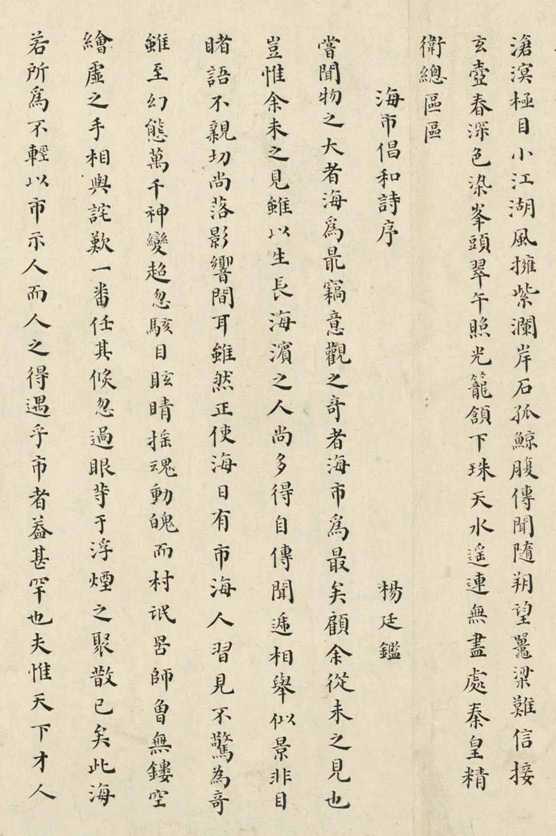 滄溟極目小江湖風擁紫瀾岸石孤鯨腹傳聞隨朔望鼉梁難信接
玄壺春深色染峯頭翠午照光籠頷下珠天水遥連無盡處秦皇精
衛總區區
海市倡和詩序
楊廷鑑
嘗聞物之大者海爲最竊意觀之奇者海市爲最矣顧余從未之見也
豈惟余未之見雖以生長海濱之人尚多得自傳聞遞相舉似景非目
睹語不親切尚落影響間耳雖然正使海日有市海人習見不驚為奇
雖至幻態萬千神變超忽駭目眩睛摇魂動魄而村氓罟師曾無鏤空
繪虛之手相與詫歎一番任其倏忽過眼等于浮煙之聚散已矣此海
若所爲不輕以市示人而人之得遇乎市者葢甚罕也夫惟天下才人